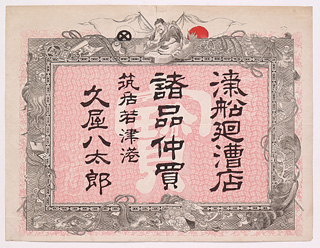 漆船廻漕店
諸品仲買
筑后若津港
久屋八太郎